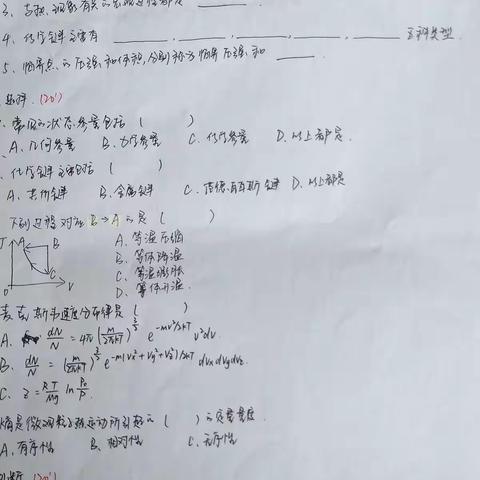 3、与热现象有关的宏观过程都是 ______.
4、化学键主要有 ______, ______, ______, ______, ______ 五种类型.
5、临界点的压强和体积,分别称为临界压强和 ______.
选择.(20')
、常见的状态参量包括 ( )
A、几何参量 B、力学参量 C、化学参量 D、以上都是.
、化学键主要包括 ( )
A、共价键 B、金属键 C、范德瓦耳斯键 D、以上都是
下列过程对应 B→A 的是 ( )
T A B C O V
A、等温压缩
B、等体降温
C、等温膨胀
D、等体升温.
麦克斯韦速度分布律是 ( )
A. dN/N = 4π(m/2πkT)^{3/2} e^{-mv²/2kT} v²dv.
B. dN/N = (m/2πkT)^{3/2} e^{-m(vx²+vy²+vz²)/2kT} dvxdvydvz.
C. z = RT/Mg ln P₀/P.
熵是(微观粒子)热运动所引起的 ( ) 的定量量度.
A、有序性 B、相对性 C、无序性
(20')